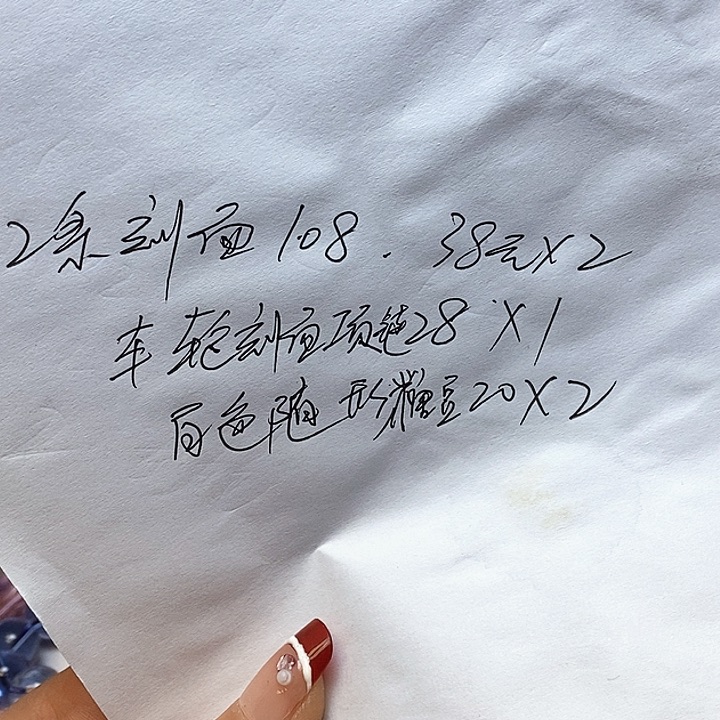 2条刻面108.38元×2
车轮刻面项链28×1
百色随形糖豆20×2